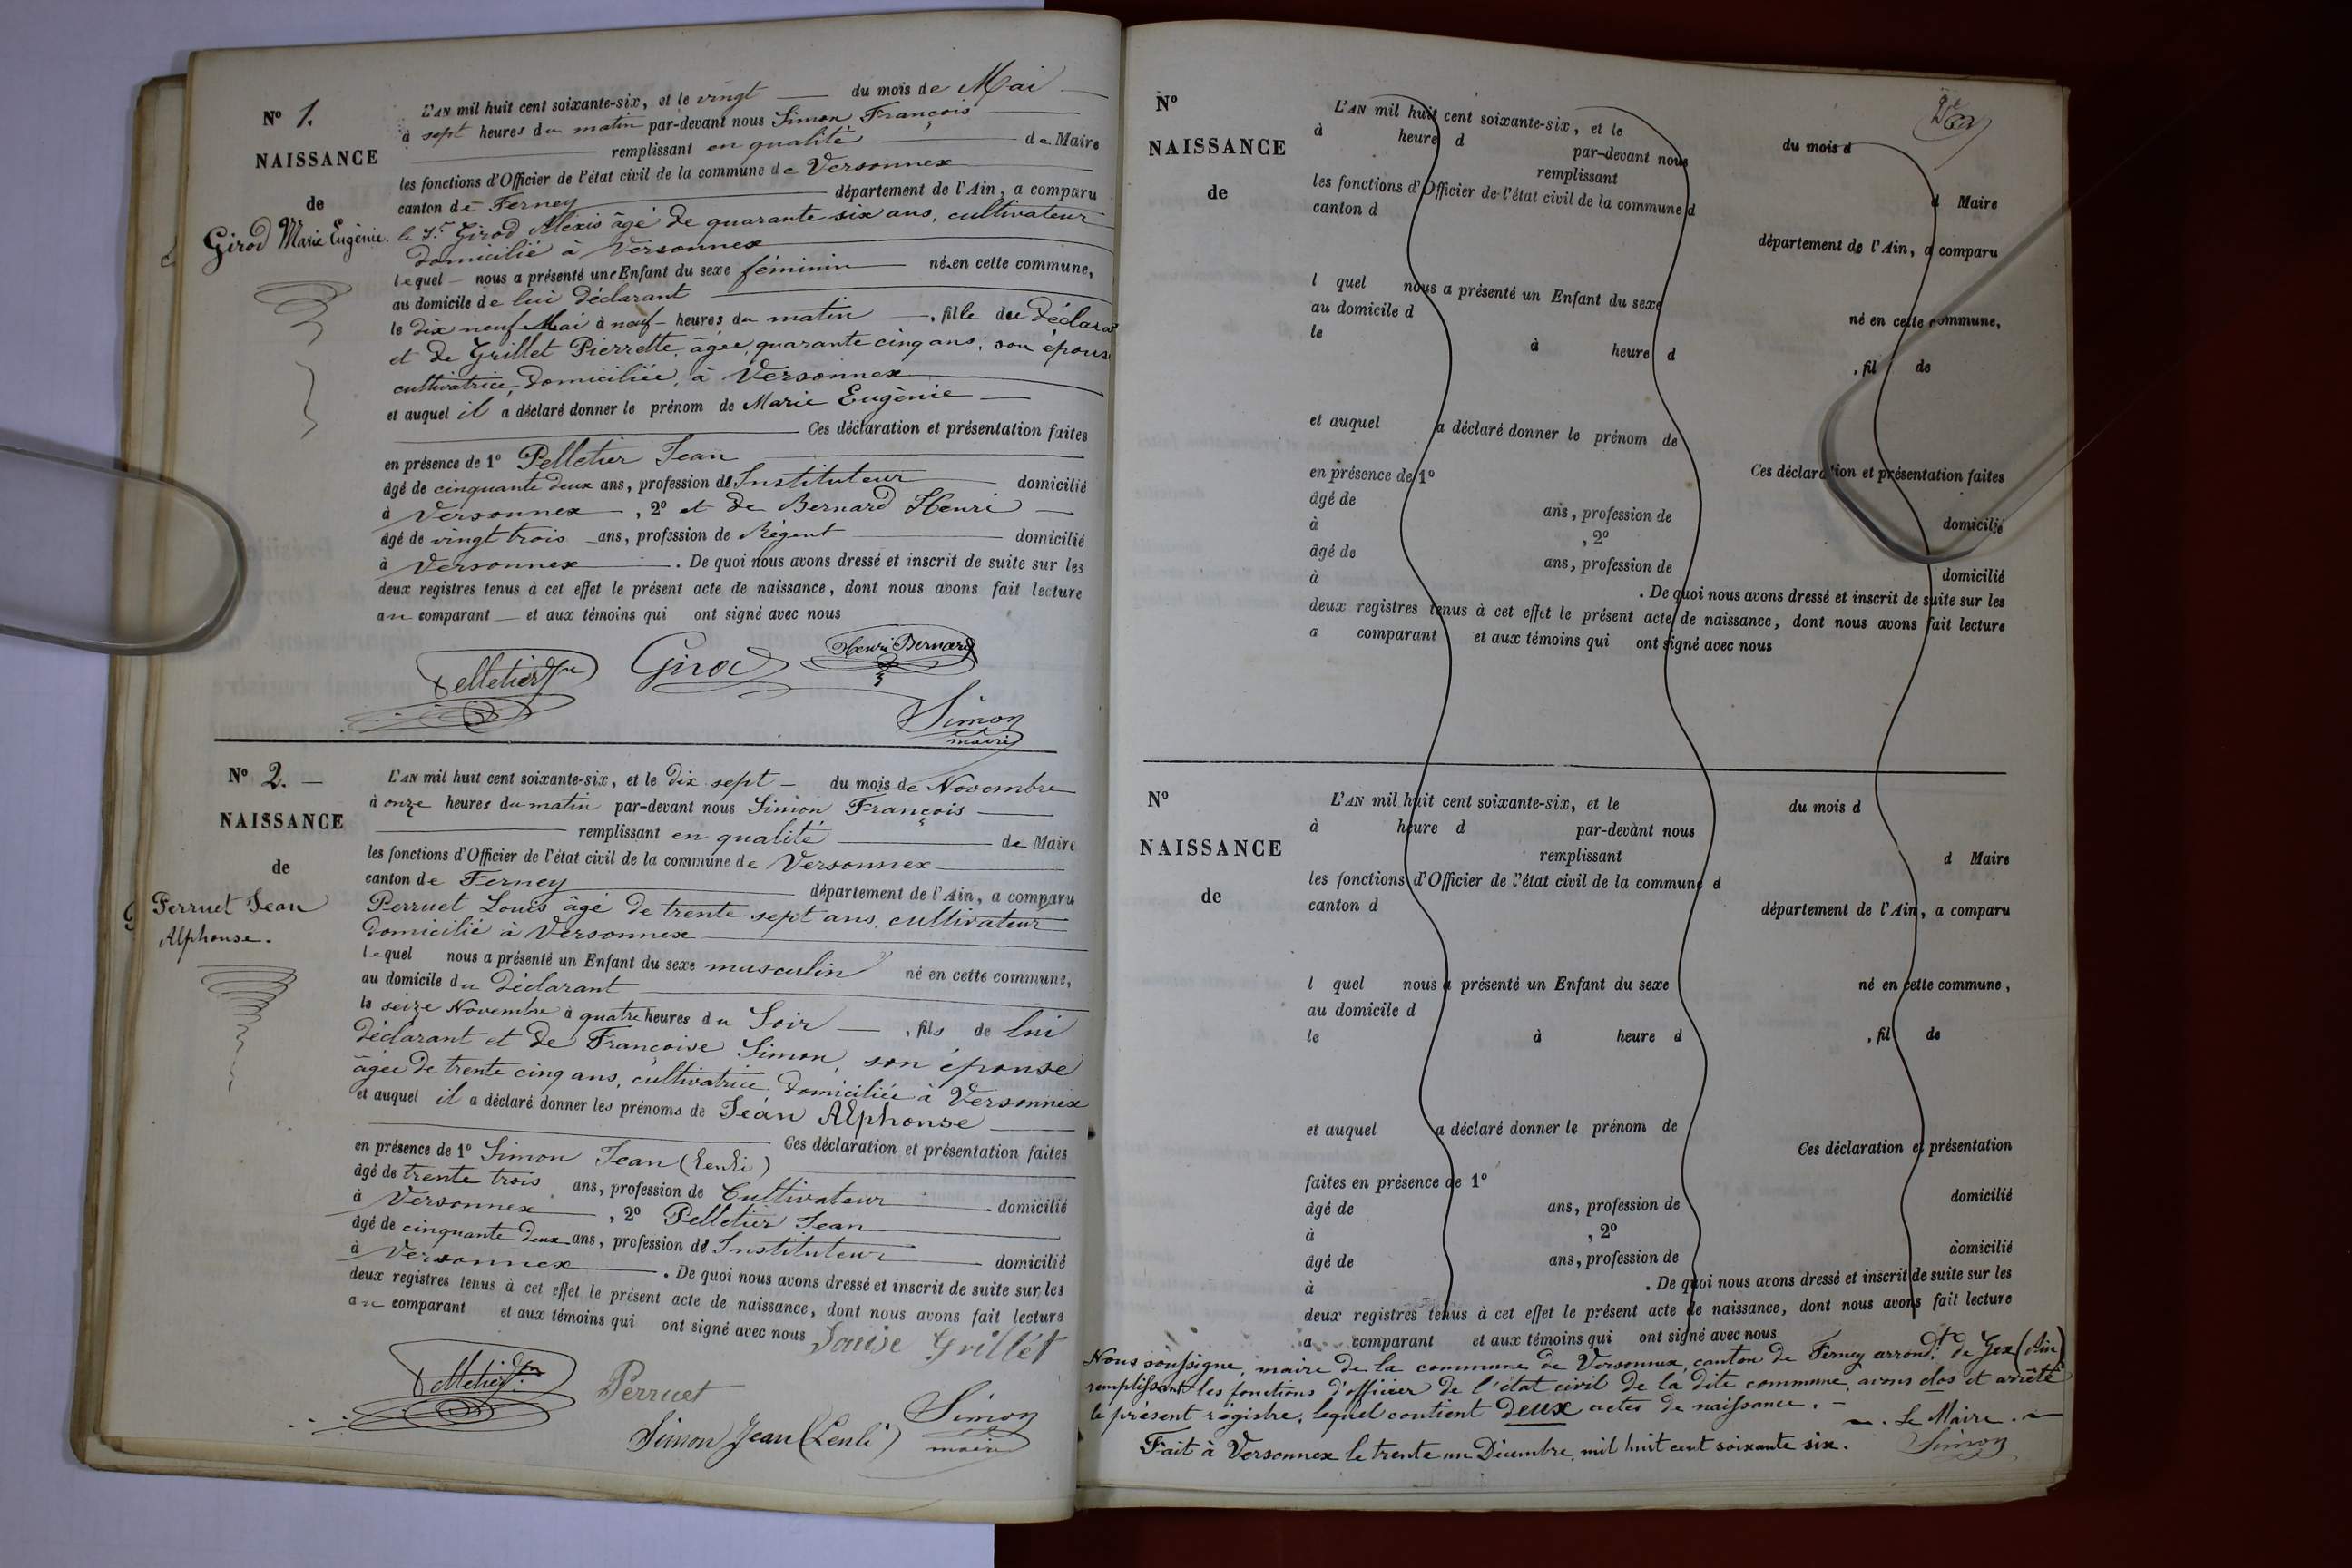 Nº 1.
NAISSANCE
de
Girod Marie Eugénie.
L'AN mil huit cent soixante-six, et le vingt — du mois de Mai —
à sept heures du matin par-devant nous Simon François
remplissant en qualité de Maire
les fonctions d'Officier de l'état civil de la commune de Versonnex
canton de Ferney département de l'Ain, a comparu
le Sr. Girod Alexis âgé de quarante six ans, cultivateur
domicilié à Versonnex
lequel — nous a présenté une Enfant du sexe féminin — née en cette commune,
au domicile de lui déclarant
le dix neuf Mai à neuf heures du matin —, fille du déclarant
et de Grillet Pierrette, âgée, quarante cinq ans; son épouse
cultivatrice, domiciliée, à Versonnex
et auquel il a déclaré donner le prénom de Marie Eugénie —
Ces déclaration et présentation faites
en présence de 1º Pelletier Jean
âgé de cinquante deux ans, profession de Instituteur domicilié
à Versonnex —, 2º et de Bernard Henri —
âgé de vingt trois ans, profession de Régent domicilié
à Versonnex . De quoi nous avons dressé et inscrit de suite sur les
deux registres tenus à cet effet le présent acte de naissance, dont nous avons fait lecture
au comparant — et aux témoins qui ont signé avec nous
Pelletier Jn Girod Henri Bernard
Simon
maire
Nº 2. —
NAISSANCE
de
Perruet Jean
Alphonse.
L'AN mil huit cent soixante-six, et le dix sept — du mois de Novembre
à onze heures du matin par-devant nous Simon François —
remplissant en qualité de Maire
les fonctions d'Officier de l'état civil de la commune de Versonnex
canton de Ferney département de l'Ain, a comparu
Perruet Louis âgé de trente sept ans, cultivateur
domicilié à Versonnex
lequel nous a présenté un Enfant du sexe masculin né en cette commune,
au domicile du déclarant
le seize Novembre à quatre heures du Soir —, fils de lui
déclarant et de Françoise Simon, son épouse
âgée de trente cinq ans, cultivatrice, domiciliée à Versonnex
et auquel il a déclaré donner les prénoms de Jean Alphonse
Ces déclaration et présentation faites
en présence de 1º Simon Jean (Lenli)
âgé de trente trois ans, profession de Cultivateur domicilié
à Versonnex , 2º Pelletier Jean
âgé de cinquante deux ans, profession de Instituteur domicilié
à Versonnex . De quoi nous avons dressé et inscrit de suite sur les
deux registres tenus à cet effet le présent acte de naissance, dont nous avons fait lecture
au comparant et aux témoins qui ont signé avec nous Grillet
Pelletier Jn Perruet
Simon Jean (Lenli) Simon
maire
Nº
NAISSANCE
de
L'AN mil huit cent soixante-six, et le du mois d
à heure d par-devant nous
remplissant d Maire
les fonctions d'Officier de l'état civil de la commune d
canton d département de l'Ain, a comparu
l quel nous a présenté un Enfant du sexe né en cette commune,
au domicile d
le à heure d , fil de
et auquel a déclaré donner le prénom de
Ces déclaration et présentation faites
en présence de 1º
âgé de ans, profession de domicilié
à , 2º
âgé de ans, profession de domicilié
à . De quoi nous avons dressé et inscrit de suite sur les
deux registres tenus à cet effet le présent acte de naissance, dont nous avons fait lecture
a comparant et aux témoins qui ont signé avec nous
Nº
NAISSANCE
de
L'AN mil huit cent soixante-six, et le du mois d
à heure d par-devant nous
remplissant d Maire
les fonctions d'Officier de l'état civil de la commune d
canton d département de l'Ain, a comparu
l quel nous a présenté un Enfant du sexe né en cette commune,
au domicile d
le à heure d , fil de
et auquel a déclaré donner le prénom de
Ces déclaration et présentation
faites en présence de 1º
âgé de ans, profession de domicilié
à , 2º
âgé de ans, profession de domicilié
à . De quoi nous avons dressé et inscrit de suite sur les
deux registres tenus à cet effet le présent acte de naissance, dont nous avons fait lecture
a comparant et aux témoins qui ont signé avec nous
Nous soussigné, maire de la commune de Versonnex, canton de Ferney arrond.t de Gex (Ain)
remplissant les fonctions d'officier de l'état civil de la dite commune, avons clos et arrêté
le présent régistre, lequel contient deux actes de naissance. —
Le Maire.
Fait à Versonnex le trente un Décembre, mil huit cent soixante six. Simon